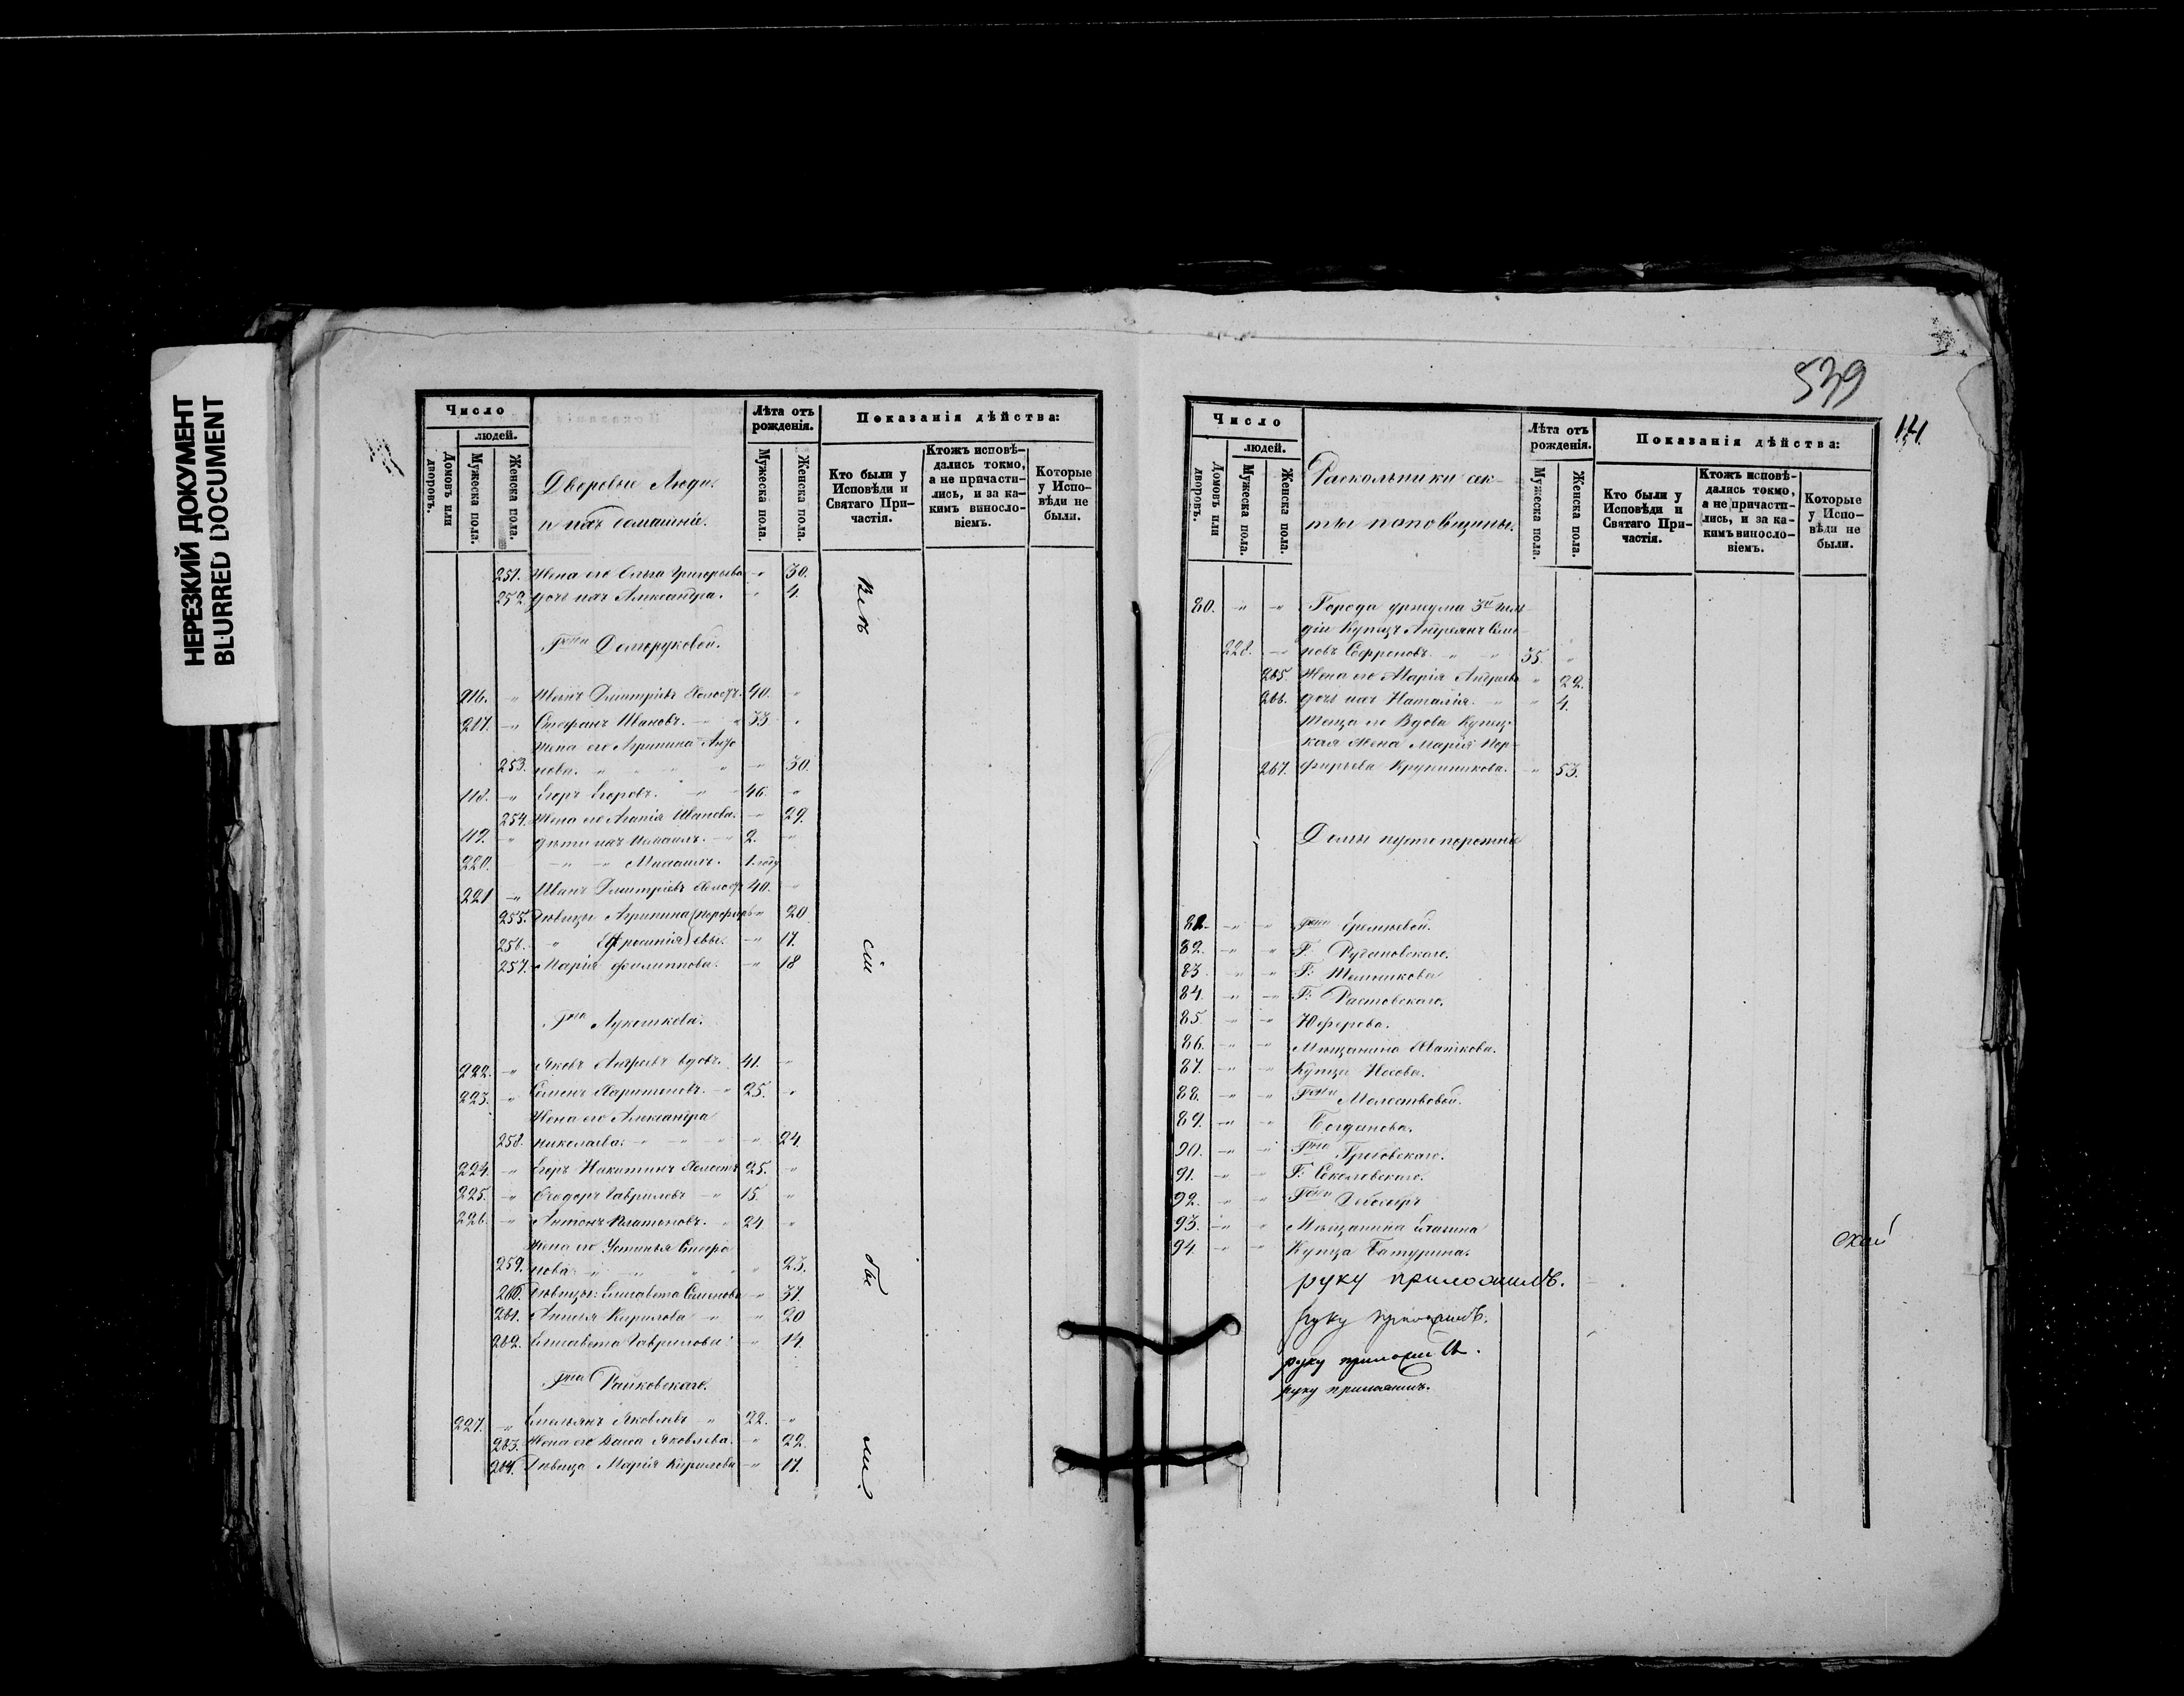 НЕРЕЗКИЙ ДОКУМЕНТ
BLURRED DOCUMENT
Число
людей.
Домовъ или дворовъ.
Мужеска пола.
Женска пола.
Дворовые Люди
и ихъ домашніе.
Лѣта отъ рожденія.
Мужеска пола.
Женска пола.
Показанія дѣйства:
Кто были у Исповѣди и Святаго При-
частія.
Ктожъ исповѣ-
дались токмо,
а не причасти-
лись, и за ка-
кимъ винос­ло-
віемъ.
Которые
у Испо-
вѣди не
были.
251. Жена его Ольга Григорьева -"- 30.
252. дочь ихъ Александра. " 4.
Гжи Долгоруковой.
216. " Дмитріевъ Холостъ. 40. "
217. -"- Стефанъ Ивановъ. -"- 33 "
Жена его Агрипина
253. нова. " " " " -"- 30.
118. -"- Егоръ Егоровъ. " " 46. "
254. Жена его Агапія Иванова. -"- 29.
119. " дѣти ихъ -"- 2. -"-
220. -"- -"- Михаилъ. 1 году
221 -"- Иванъ Дмитріевъ Холостъ 40. -"-
255. Дѣвицы Агрипина -"- 20
256. " -"- 17.
257. Марія Филиппова. -"- 18
Гна Лукошкова.
222. -"- Яковъ Андреевъ вдовъ. 41. -"-
223. -"- Семенъ Харитоновъ. -"- 25. -"-
Жена его Александра
258. Николаева. -"- -"- -"- -"- 24.
224. -"- Егоръ Никитинъ Холостъ 25. -"-
225. -"- Ѳеодоръ Гавриловъ -"- 15. -"-
226. -"- Антонъ Платоновъ. " 24 -"-
Жена его Устинья Стефа
259. нова " " " " " 23.
260. Дѣвицы: Елисавета Семенова -"- 31.
261. Кирилова -"- " 20
262. Елисавета Гаврилова " 14.
Гна Райковскаго.
227. -"- Емельянъ Яковлевъ " 22. -"-
263. Жена его Васса Яковлева. -"- 22.
264. Дѣвица Марія Кирилова -"- 17.
Всѣ
сіи
бы
ли.
539
141.
Число
людей.
Домовъ или дворовъ.
Мужеска пола.
Женска пола.
Раскольники сек-
ты поповщины.
Лѣта отъ рожденія.
Мужеска пола.
Женска пола.
Показанія дѣйства:
Кто были у
Исповѣди и
Святаго При-
частія.
Ктожъ исповѣ-
дались токмо,
а не причасти-
лись, и за ка-
кимъ винос­ло-
віемъ.
Которые
у Испо-
вѣди не
были.
80. -"- -"- Города Уржума 3й гиль-
діи Купецъ Андреянъ Семе-
228. -"- новъ Сафроновъ. " " 35. "
265. Жена его Марія Андреева " 22.
266. дочь ихъ Наталія. " " 4.
Теща его Вдова Купец-
кая Жена Марія Пор-
267. фирьева Крупиникова. -"- 53.
Домы пустопорожніе
81. -"- -"- Гжи Еремѣевой.
82. -"- " Г. Рудановскаго.
83. -"- " Г:
84. -"- -"- Г: Растовскаго.
85. -"- -"- Юферова.
86. -"- -"- Мѣщанина
87. -"- " Купца Носова.
88. -"- " Гжи Молоствовой.
89. -"- " Богданова.
90. -"- " Гна
91. -"- " Г: Соколовскаго.
92. " " Гжи
93. -"- " Мѣщанина Елагина
94. -"- -"- Купца Батурина.
руку приложилъ.
руку приложилъ.
руку приложилъ.
руку приложилъ.